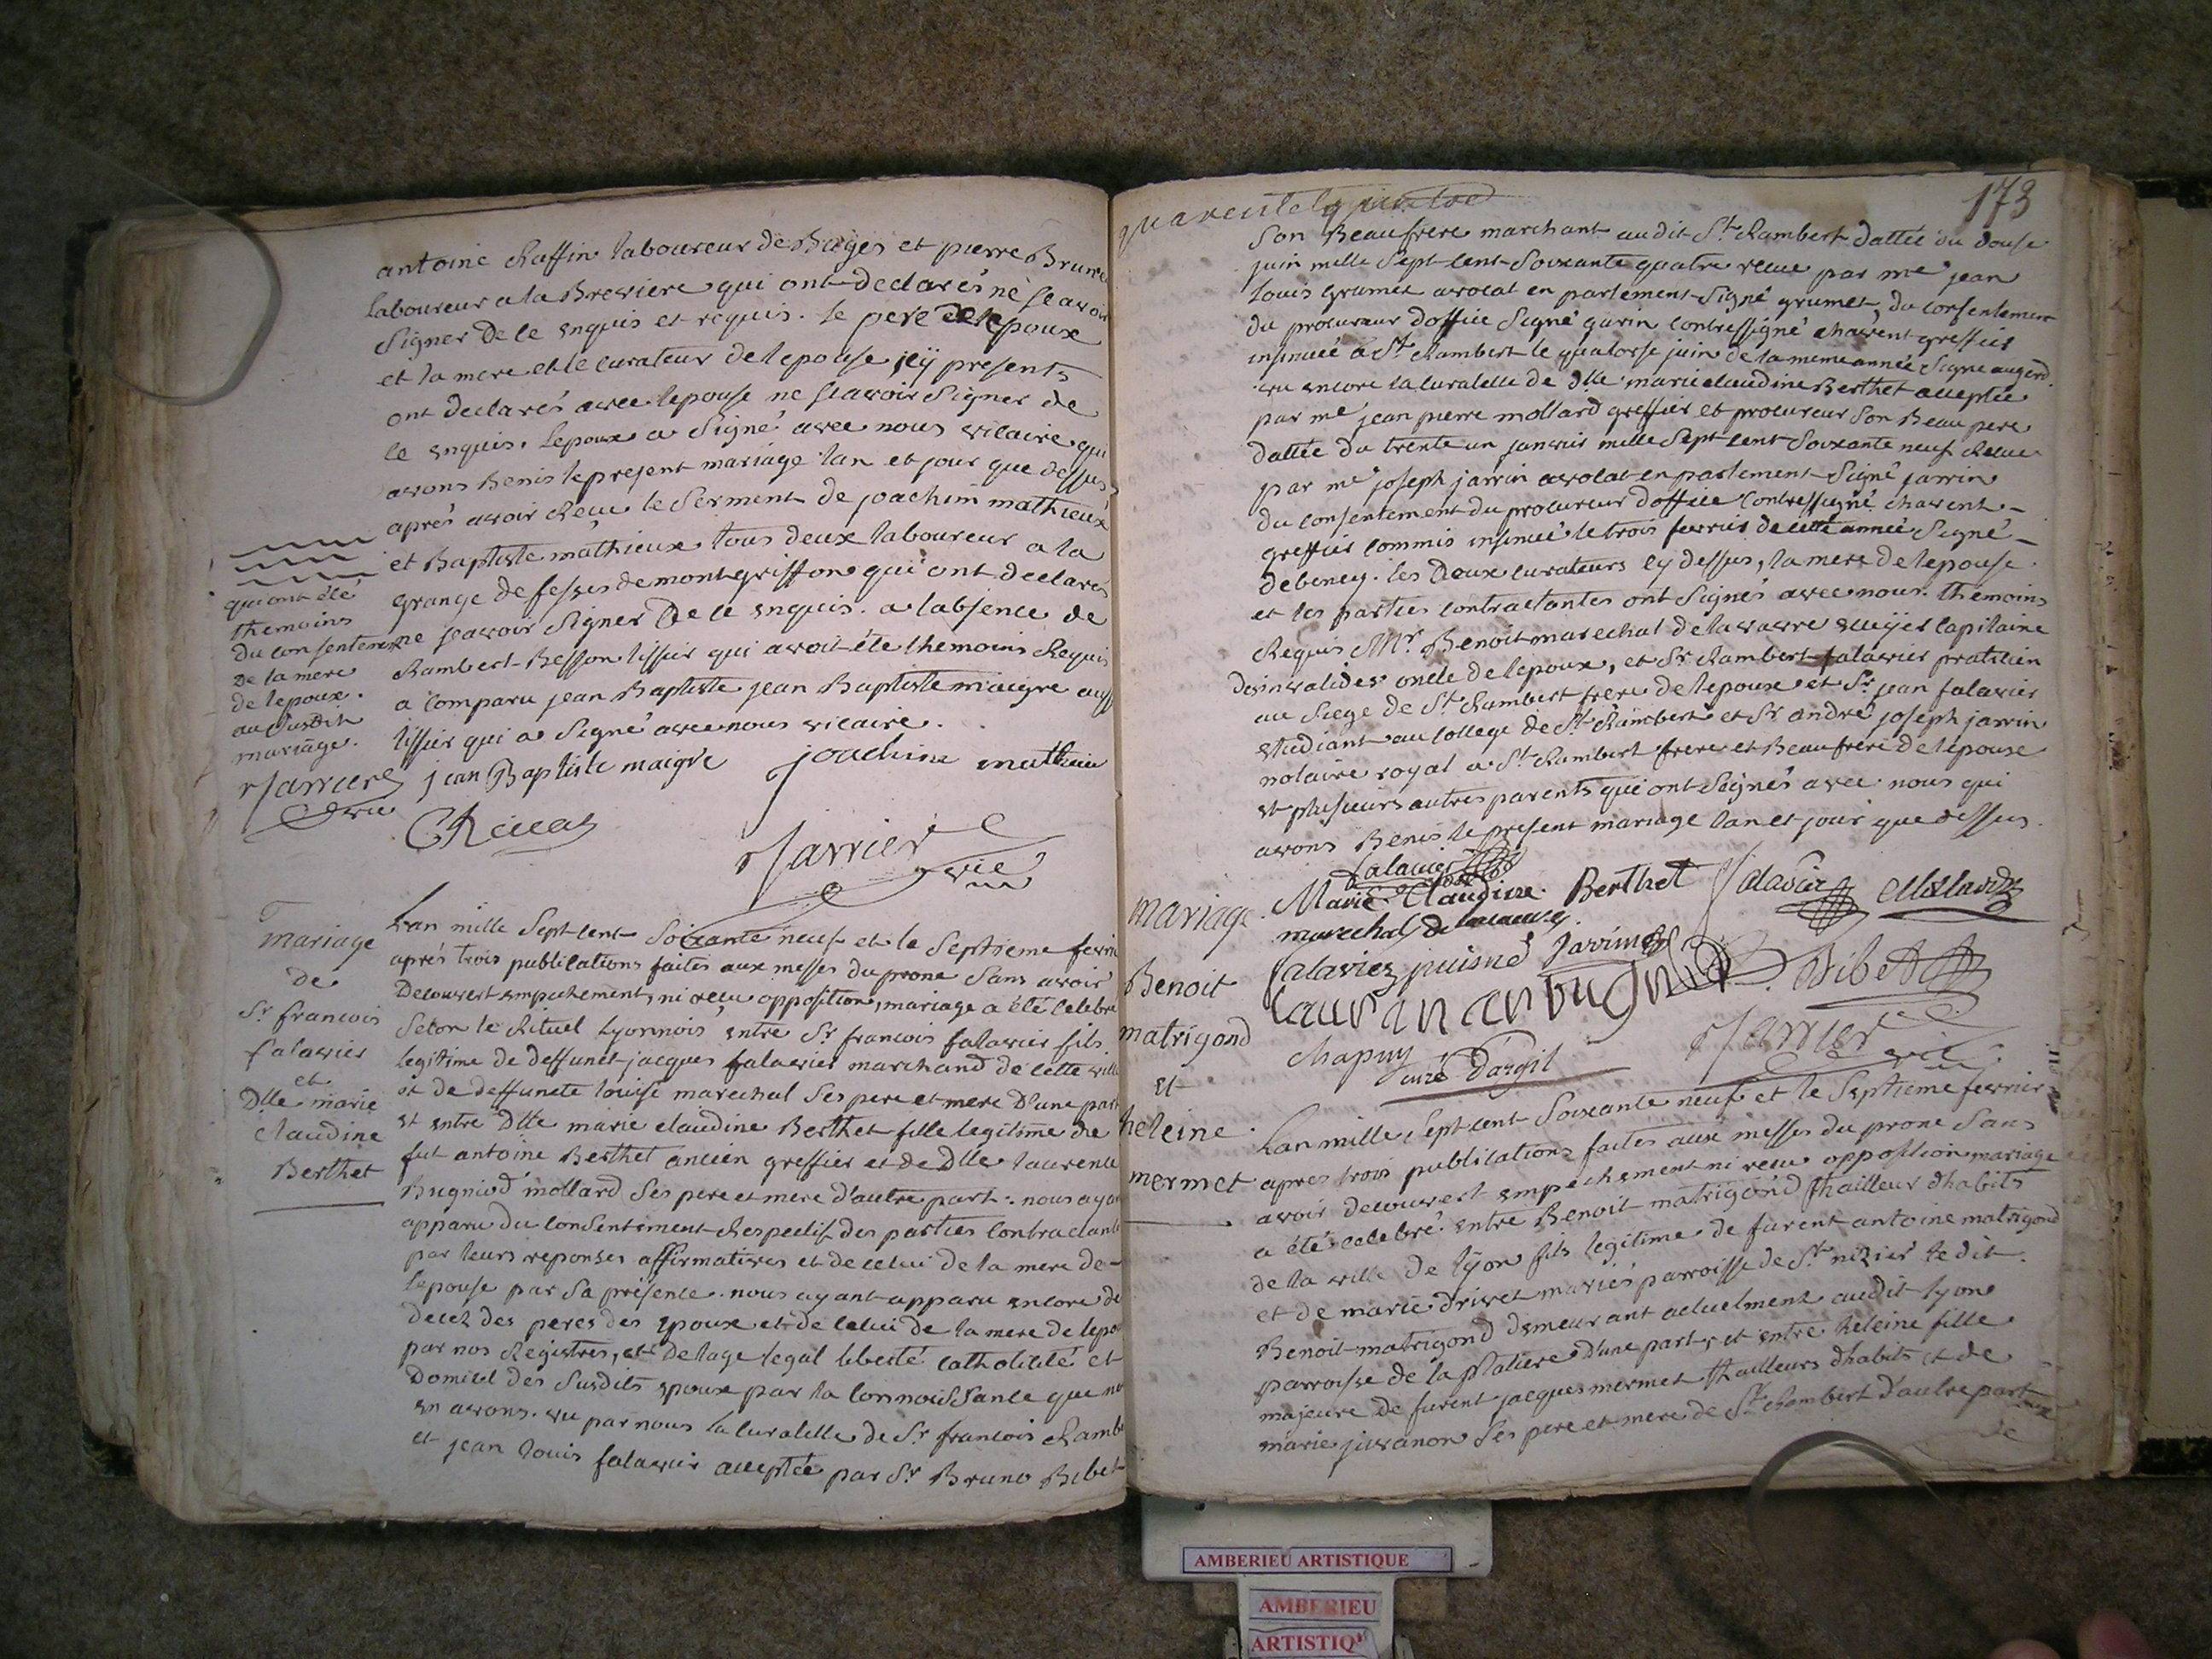 antoine Ruffin laboureur de Bages et pierre
laboureur a la Breviere qui ont declarés ne scavoir
signer de ce enquis et requis. le pere de lepoux
et la mere et le curateur de lepouse icÿ presents
ont declarés avec lepouse ne scavoir signer de
ce enquis. Lepoux a signé avec nous vicaire qui
avons Benis le present mariage lan et jour que dessus
aprés avoir Recu le serment de joachim mathieux
et Baptiste mathieux tous deux laboureur a la
grange de montgriffon qui ont declarés
ne scavoir signer De ce enquis. a labsence de
Rambert Besson tissier qui avoit été themoins Requis
a comparu jean Baptiste jean Baptiste maigre aussi
tissier qui a signé avec nous vicaire.
qui ont été
themoins
du consentement
de la mere
de lepoux.
au susdit
mariage.
jean Baptiste maigre joachim mathieu
vic
Mariage
de
Sr francois
falavier
et
Dlle marie
claudine
Berthet
Lan mille Sept cent Soixante neuf et le Septieme
aprés trois publications faites aux messes du prone Sans avoir
Decouvert empechement, ni recu opposition, mariage a été celebré
Selon le Rituel Lyonnois, entre Sr francois falavier fils
legitime de deffunct jacques falavier marchand de cette ville
et de deffuncte louise marechal Ses pere et mere D'une part
et entre Dlle marie claudine Berthet fille legitime de
fut antoine Berthet ancien greffier et de Dlle laurence
Bugniod mollard Ses pere et mere d'autre part. nous ayant
apparu du consentement Respectif des parties contractantes
par leurs reponses affirmatives et de celui de la mere de
lepouse par Sa présence. nous ayant apparu encore du
decéz des peres des epoux et de celui de la mere de
par nos Registres, et de lage legal liberté catholicité et
Domicil des Susdits epoux par la connoissance que
en avons. vu par nous la curatelle de Sr francois
et jean louis falavier acceptée par Sr Bruno Bibet
173
Son Beaufrere marchant audit St Rambert dattée du douse
juin mille Sept cent Soixante quatre recue par me jean
louis grumet avocat en parlement Signé grumet, du consentement
du procureur doffice Signé gurin contresigné chavent greffier
insinuée a St Rambert le quatorse juin de la meme année Signe
vu encore la curatelle de Dlle marie claudine Berthet acceptée
par me jean pierre mollard greffier et procureur Son Beau pere
dattée du trente un janvier mille Sept cent Soixante neuf Recue
par me joseph jarrin avocat en parlement Signé jarrin
du consentement du procureur doffice contresigné chavent
greffier commis insinuée le trois fevrier de cette année Signé
debeney. les Deux curateurs cy dessus, la mere de lepouse
et les parties contractantes ont Signés avec nous. themoins
Requis Mr. Benoit marechal de lavavre ecuÿer capitaine
des invalides oncle de lepoux, et Sr Rambert falavier praticien
au Siege de St Rambert frere de lepoux et Sr jean falavier
etudiant au college de St Rambert et Sr andré joseph jarrin
notaire royal a St Rambert frere et Beaufrere de lepouse
et plusieurs autres parents qui ont Signés avec nous qui
avons Benis le present mariage lan et jour que dessus.
falavier
Marie Claudine Berthet falavier
marechal de lavavre
falavier puisné jarrin
Bibet
chapuy
curé d'argil
vic
mariage
Benoit
matrigond
et
heleine
mermet
Lan mille Sept cent Soixante neuf et le Septieme fevrier
apres trois publications faites aux messes du prone Sans
avoir decouvert empechement ni recu opposition mariage
a été celebré. entre Benoit matrigond thailleur dhabits
de la ville de lÿon fils legitime de furent antoine matrigond
et de marie drivet mariés parroisse de St nizier le dit
Benoit matrigond demeurant actuelment audit lyon
parroisse de la platiere d'une part, et entre heleine fille
majeure de furent jacques mermet thailleurs dhabits et de
marie juvanon Ses pere et mere de St Rambert d'autre part
AMBERIEU ARTISTIQUE
AMBERIEU
ARTISTIQ